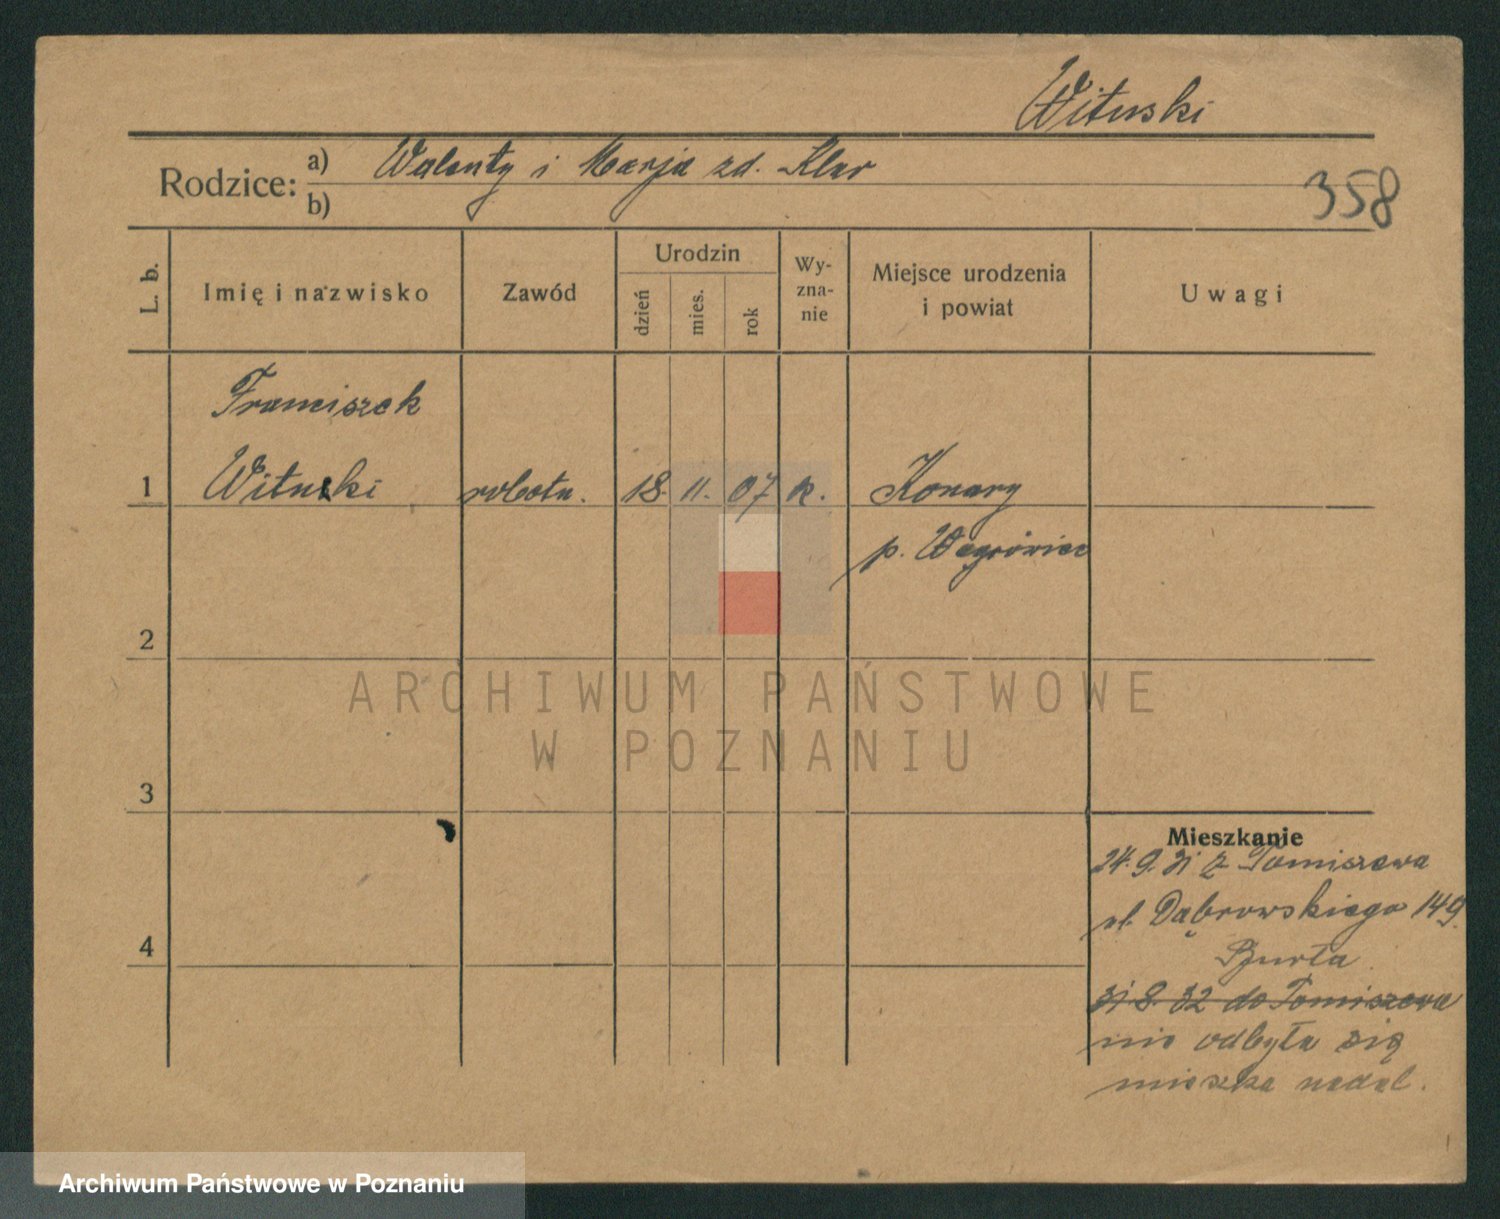 Wituski
Rodzice: a) Walenty i Marja zd. Klar
b)
358
L. b. Imię i nazwisko Zawód Urodzin dzień mies. rok Wy-zna-nie Miejsce urodzenia i powiat Uwagi
Franciszek
1 Wituski robotn. 18. 11. 07 k. Konary
p. Wągrówiec
2
ARCHIWUM PAŃSTWOWE
W POZNANIU
3
Mieszkanie
24.9.31 z Tomiszewa
ul. Dąbrowskiego 149.
31 8. 32 do Tomiszewa
4
nie odbyła się
mieszka nadal.
Archiwum Państwowe w Poznaniu